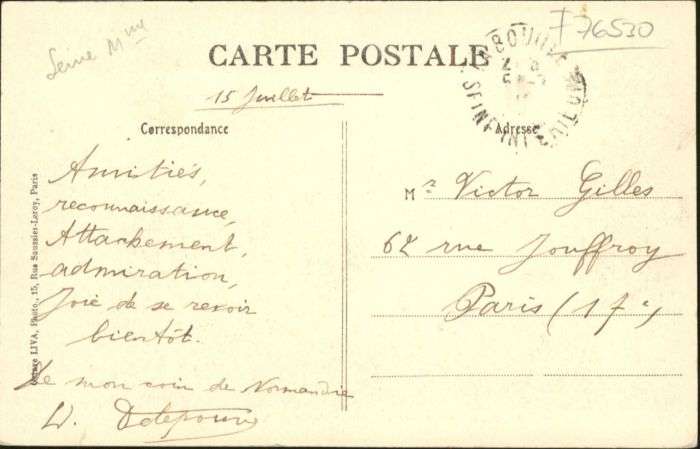 Seine Mme
76530
CARTE POSTALE
15 Juillet
Correspondance
Adresse
Amitiés,
reconnaissance,
Attachement,
admiration,
Joie de se revoir
bientôt.
De mon coin de Normandie
Mr Victor Gilles
62 rue Jouffroy
Paris (17e)
LIVA, Photo., 15, Rue Saussier-Leroy, Paris